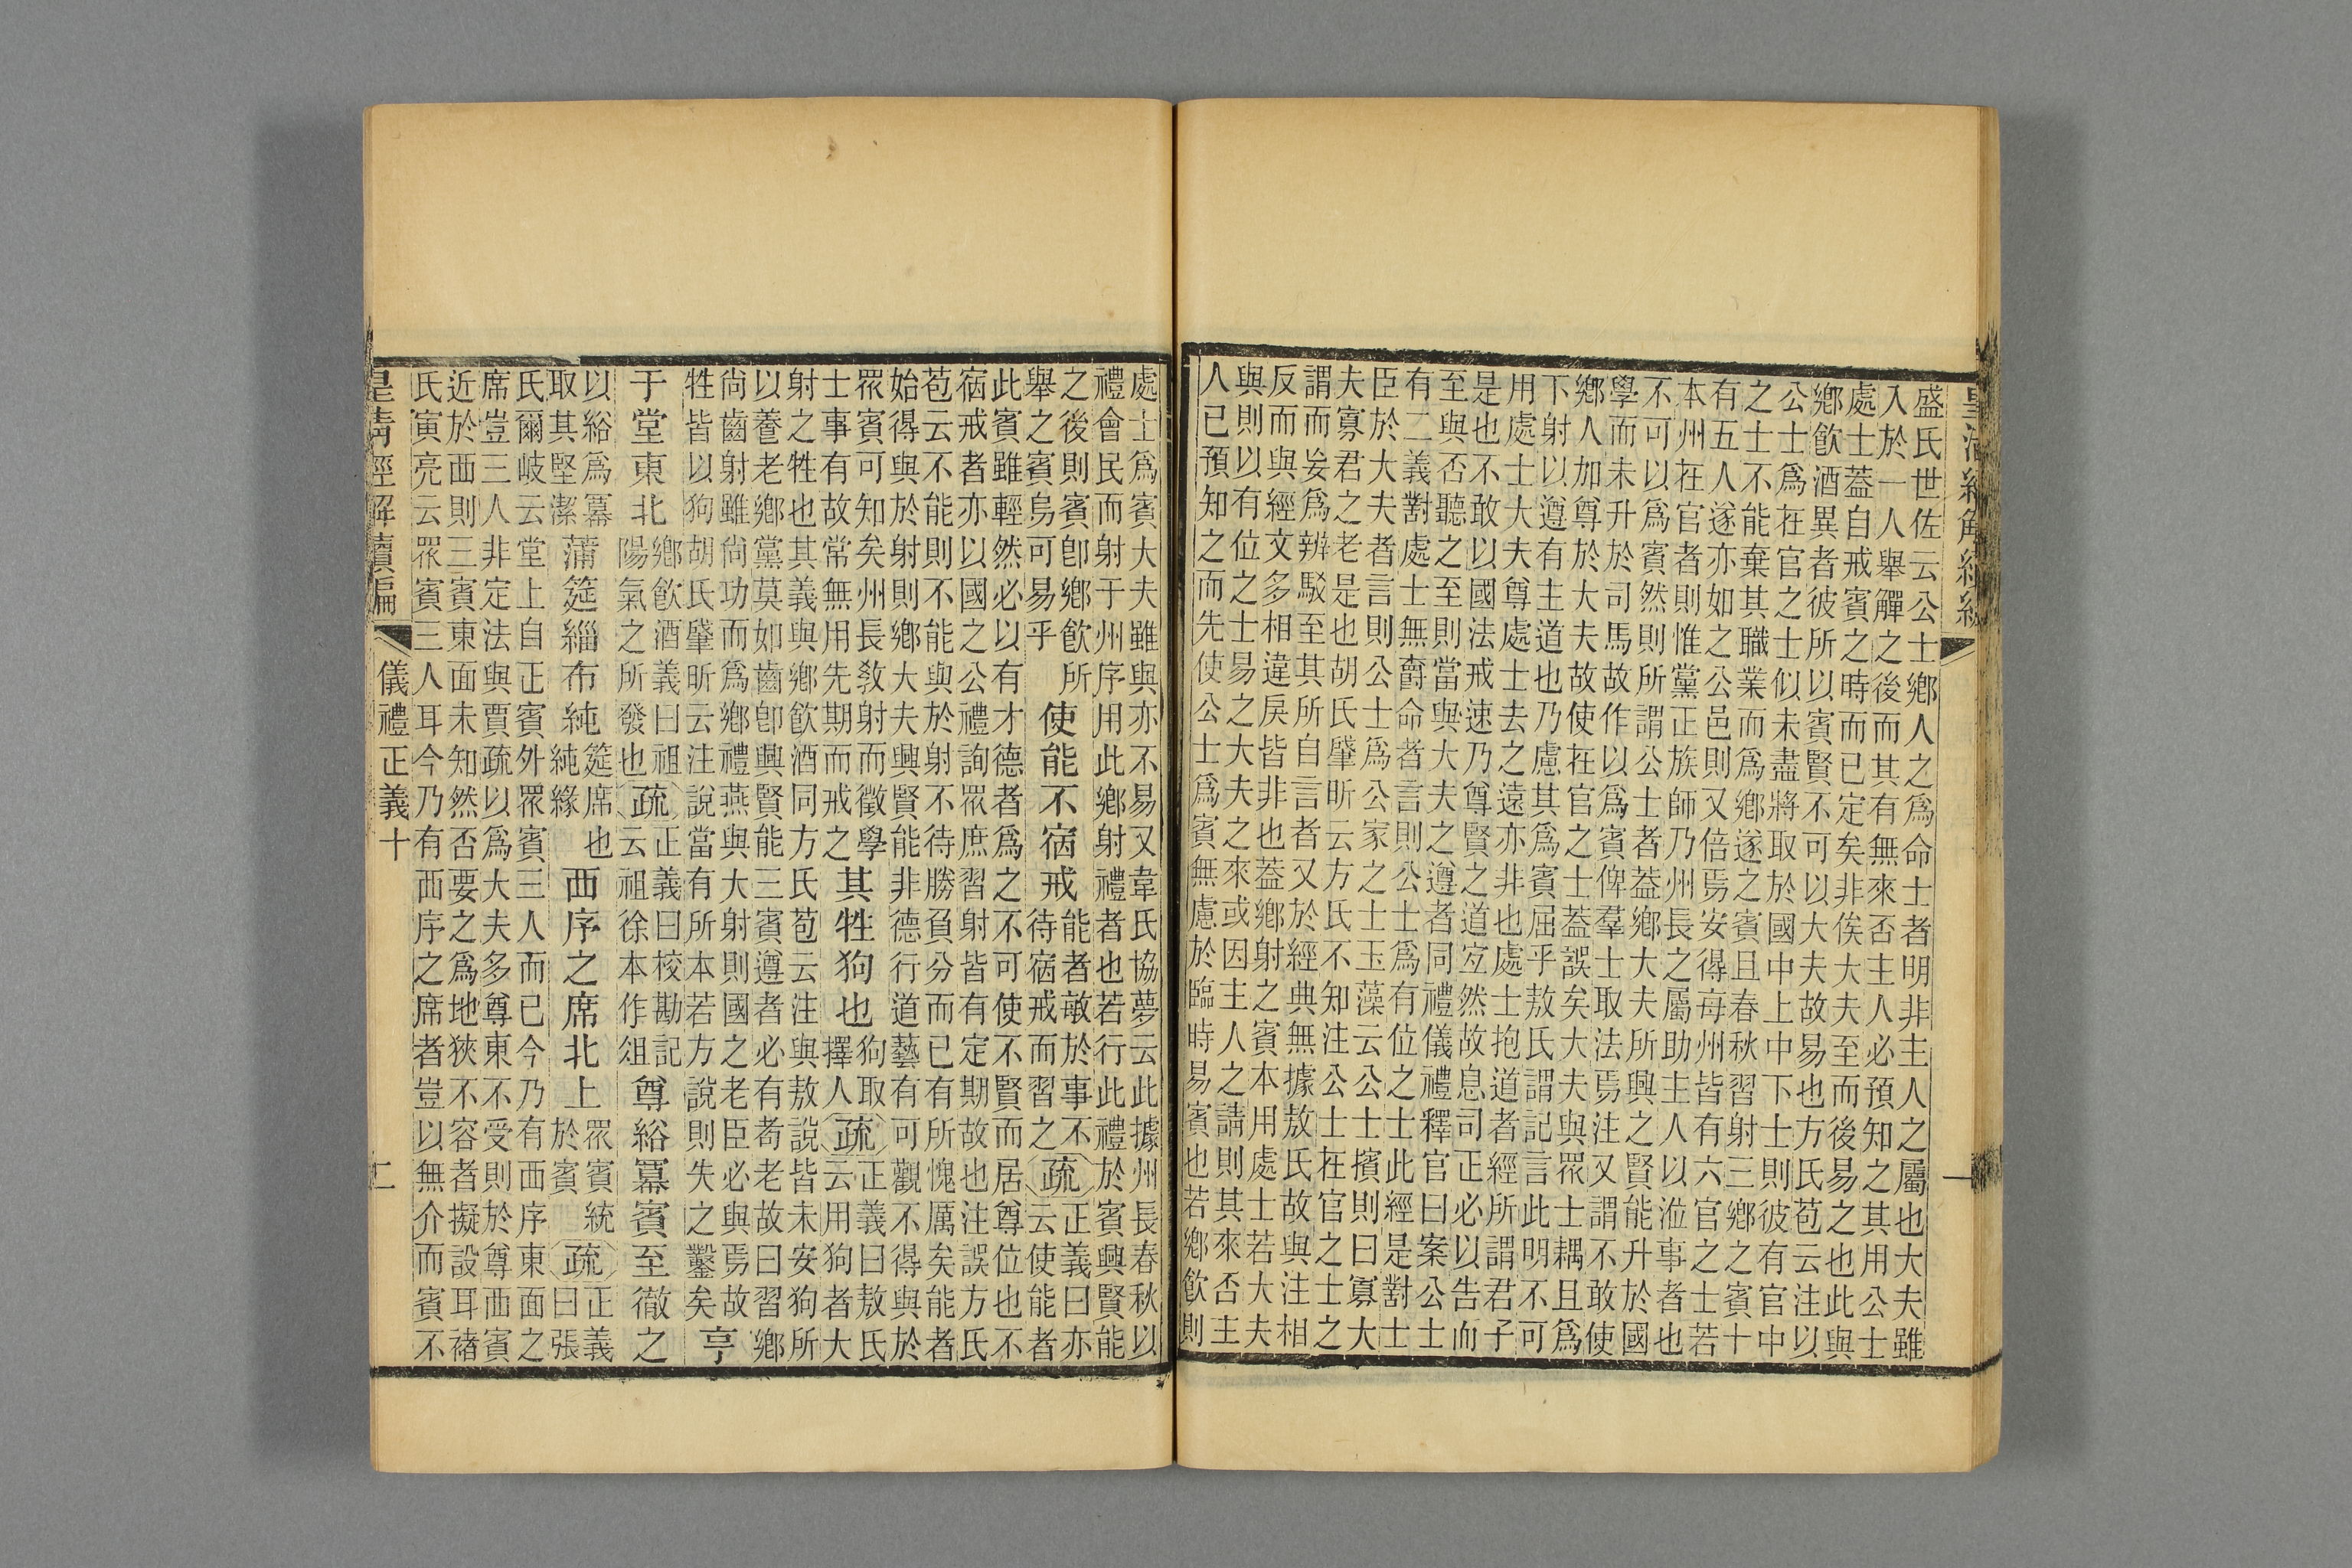 皇清經解續編
一
盛氏世佐云公士鄉人之為命士者明非主人之屬也大夫雖
入於一人舉觶之後而其有無來否主人必預知之其用公士
處士葢自戒賓之時而已定矣非俟大夫至而後易之也此與
鄉飲酒異者彼所以賓賢不可以大夫故易也方氏苞云注以
公士為在官之士似未盡將取於國中上中下士則彼有官中
之士不能棄其職業而為鄉遂之賓且春秋習射三鄉之賓十
有五人遂亦如之公邑則又倍焉安得每州皆有六官之士若
本州在官者則惟黨正族師乃州長之屬助主人以涖事者也
不可以為賓然則所謂公士者葢鄉大夫所興之賢能升於國
學而未升於司馬故作以為賓俾羣士取法焉注又謂不敢使
鄉人加尊於大夫故使在官之士葢誤矣大夫與眾士耦且為
下射以遵有主道也乃慮其為賓屈乎敖氏謂記言此明不可
用處士大夫尊處士去之遠亦非也處士抱道者經所謂君子
是也不敢以國法戒速乃尊賢之道宜然故息司正必以告而
至與否聽之至則當與大夫之遵者同禮儀禮釋官曰案公士
有二義對處士無爵命者言則公士為有位之士此經是對士
臣於大夫者言則公士為公家之士玉藻云公士擯則曰寡大
夫寡君之老是也胡氏肇昕云方氏不知注公士在官之士之
謂而妄為辨駁至其所自言者又於經典無據敖氏故與注相
反而與經文多相違戾皆非也葢鄉射之賓本用處士若大夫
與則以有位之士易之大夫之來或因主人之請則其來否主
人已預知之而先使公士為賓無慮於臨時易賓也若鄉飲則
處士為賓大夫雖與亦不易又韋氏協夢云此據州長春秋以
禮會民而射于州序用此鄉射禮者也若行此禮於賓興賢能
之後則賓卽鄉飲所
舉之賓烏可易乎
使能不宿戒
能者敏於事不
待宿戒而習之
疏
正義曰亦
云使能者
此賓雖輕然必以有才德者為之不可使不賢而居尊位也不
宿戒者亦以國之公禮詢眾庶習射皆有定期故也注誤方氏
苞云不能則不能與於射不待勝負分而已有所愧厲矣能者
始得與於射則鄉大夫興賢能非德行道藝有可觀不得與於
眾賓可知矣州長教射而徵學
士事有故常無用先期而戒之
其牲狗也
狗取
擇人
疏
正義曰敖氏
云用狗者大
射之牲也其義與鄉飲酒同方氏苞云注與敖說皆未安狗所
以養老鄉黨莫如齒卽興賢能三賓遵者必有耇老故曰習鄉
尚齒射雖尚功而為鄉禮燕與大射則國之老臣必與焉故
牲皆以狗胡氏肇昕云注說當有所本若方說則失之鑿矣
亨
于堂東北
鄉飲酒義曰祖
陽氣之所發也
疏
正義曰校勘記
云祖徐本作俎
尊綌冪賓至徹之
以綌為冪
取其堅潔
蒲筵緇布純
筵席也
純緣
西序之席北上
眾賓統
於賓
疏
正義
曰張
氏爾岐云堂上自正賓外眾賓三人而已今乃有西序東面之
席豈三人非定法與賈疏以為大夫多尊東不受則於尊西賓
近於西則三賓東面未知然否要之為地狹不容者擬設耳褚
氏寅亮云眾賓三人耳今乃有西序之席者豈以無介而賓不
皇清經解續編
儀禮正義十
二